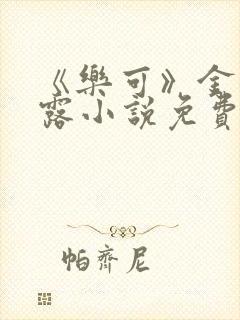 《樂可》金
露小說免費
帕齊尼